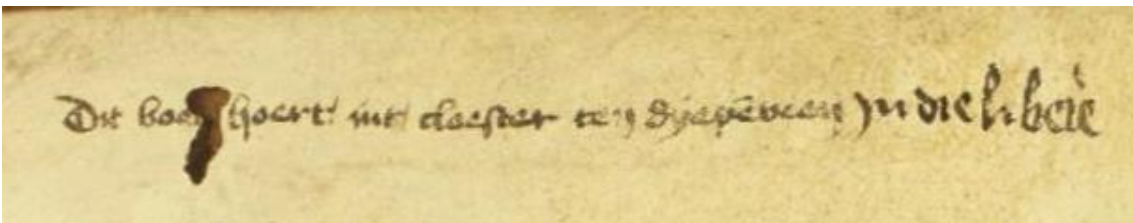 Dit boec hoert int cloester ten dyepēveen in die libeie